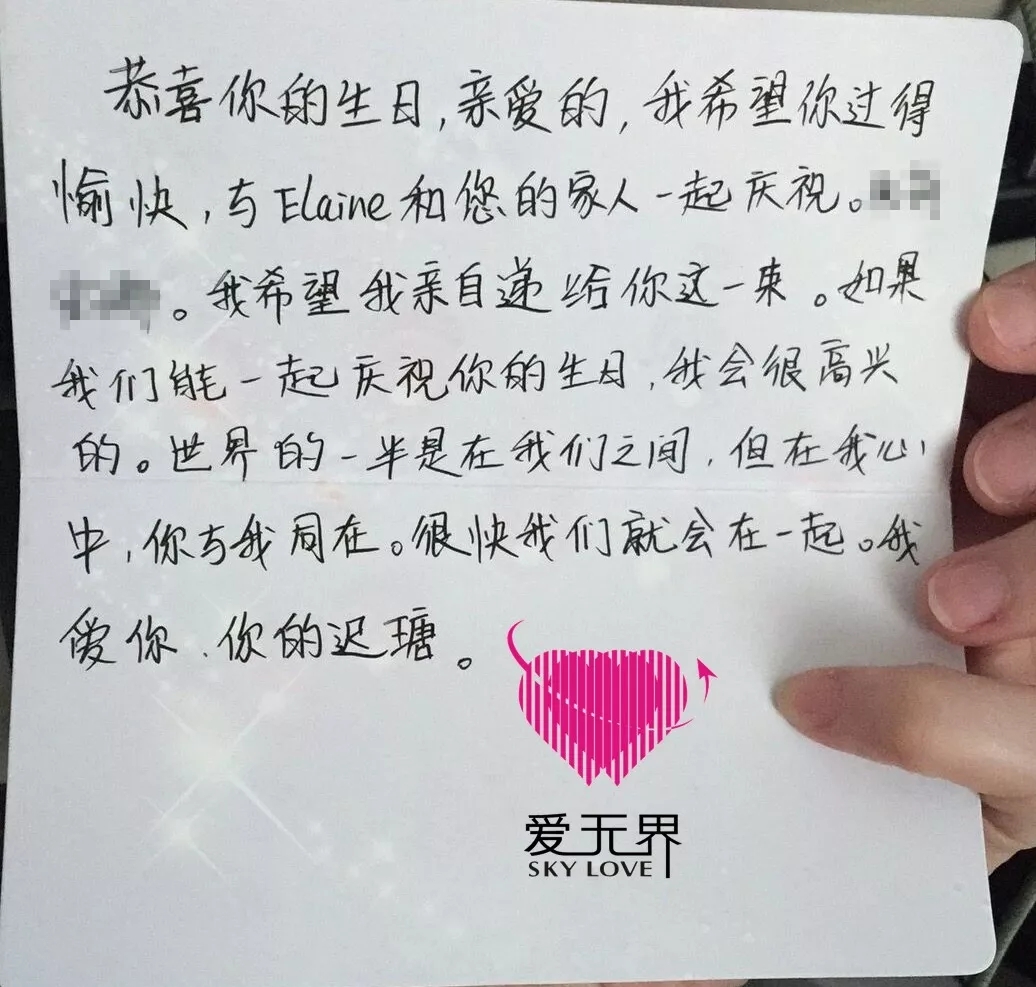 恭喜你的生日,亲爱的,我希望你过得
愉快,与Elaine和您的家人一起庆祝。
。我希望我亲自递给你这一束。如果
我们能一起庆祝你的生日,我会很高兴
的。世界的一半是在我们之间,但在我心
中,你与我同在。很快我们就会在一起。我
爱你、你的迟瑭。
爱无界
SKY LOVE